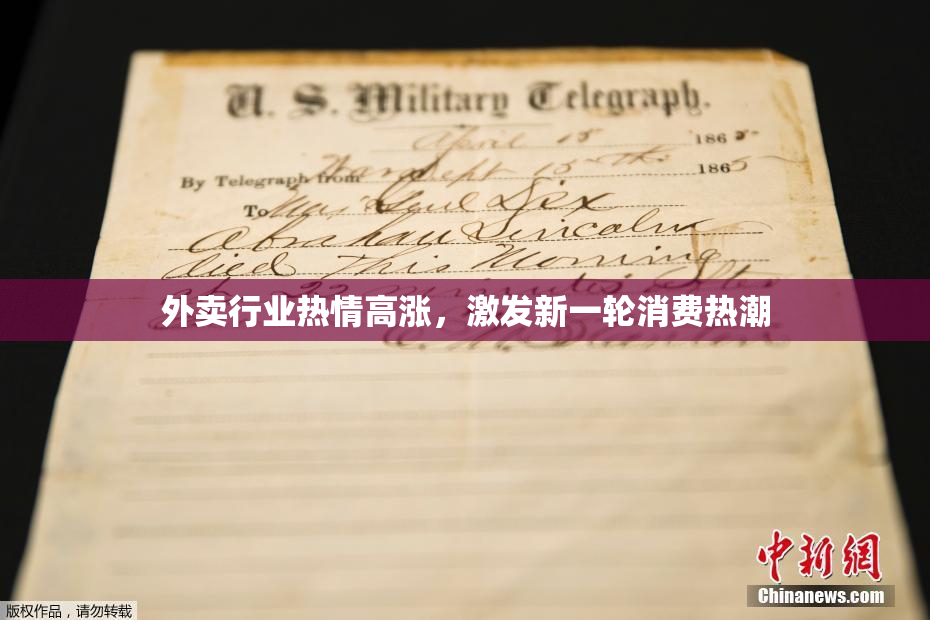 U. S. Military Telegraph.
April 15 1865
By Telegraph from War Dept 15th 1865
To Maj Genl Dix
Abraham Lincoln
died This Morning
at 22 minutes after
外卖行业热情高涨，激发新一轮消费热潮
中新网
Chinanews.com
版权作品，请勿转载